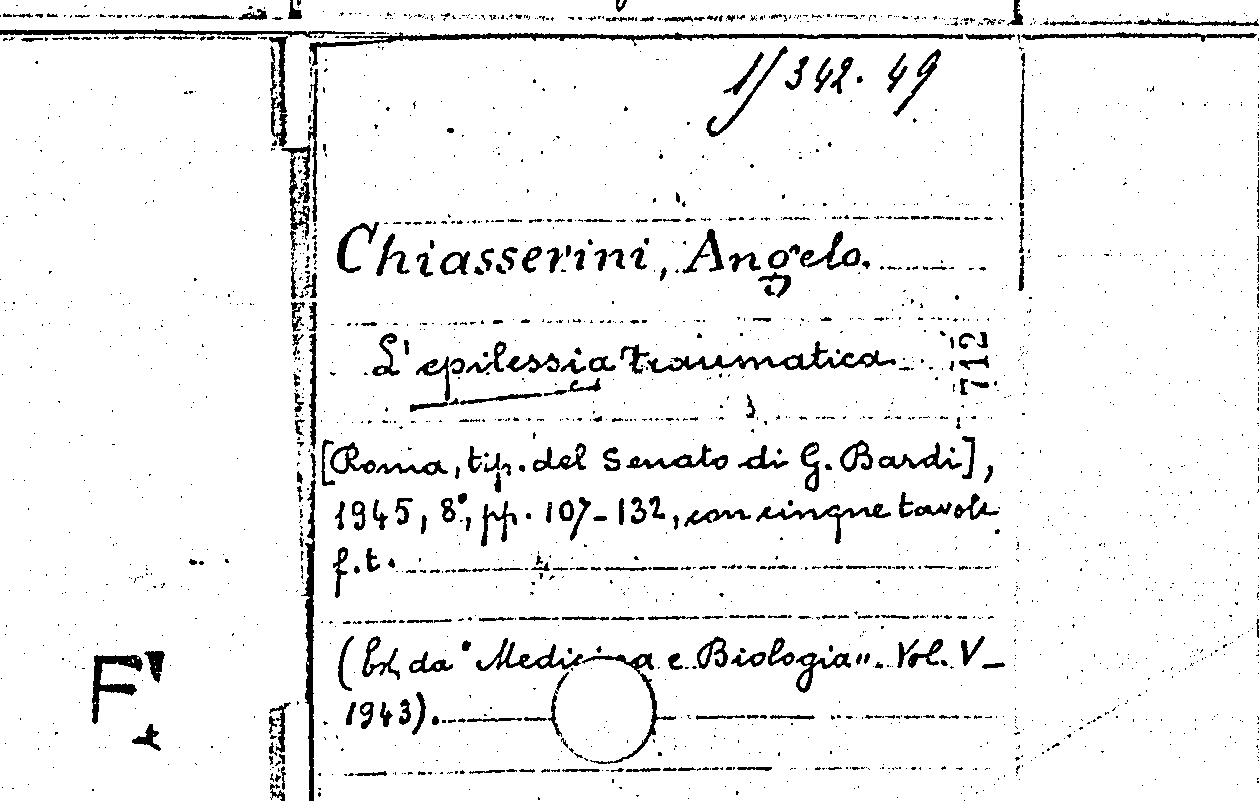 1/342.49
Chiasserini, Angelo.
L'epilessia traumatica.
712
[Roma, tip. del Senato di G. Bardi],
1945, 8°, pp. 107-132, con cinque tavole
f.t.
(Est. da "Medicina e Biologia". Vol. V-
1943).
F